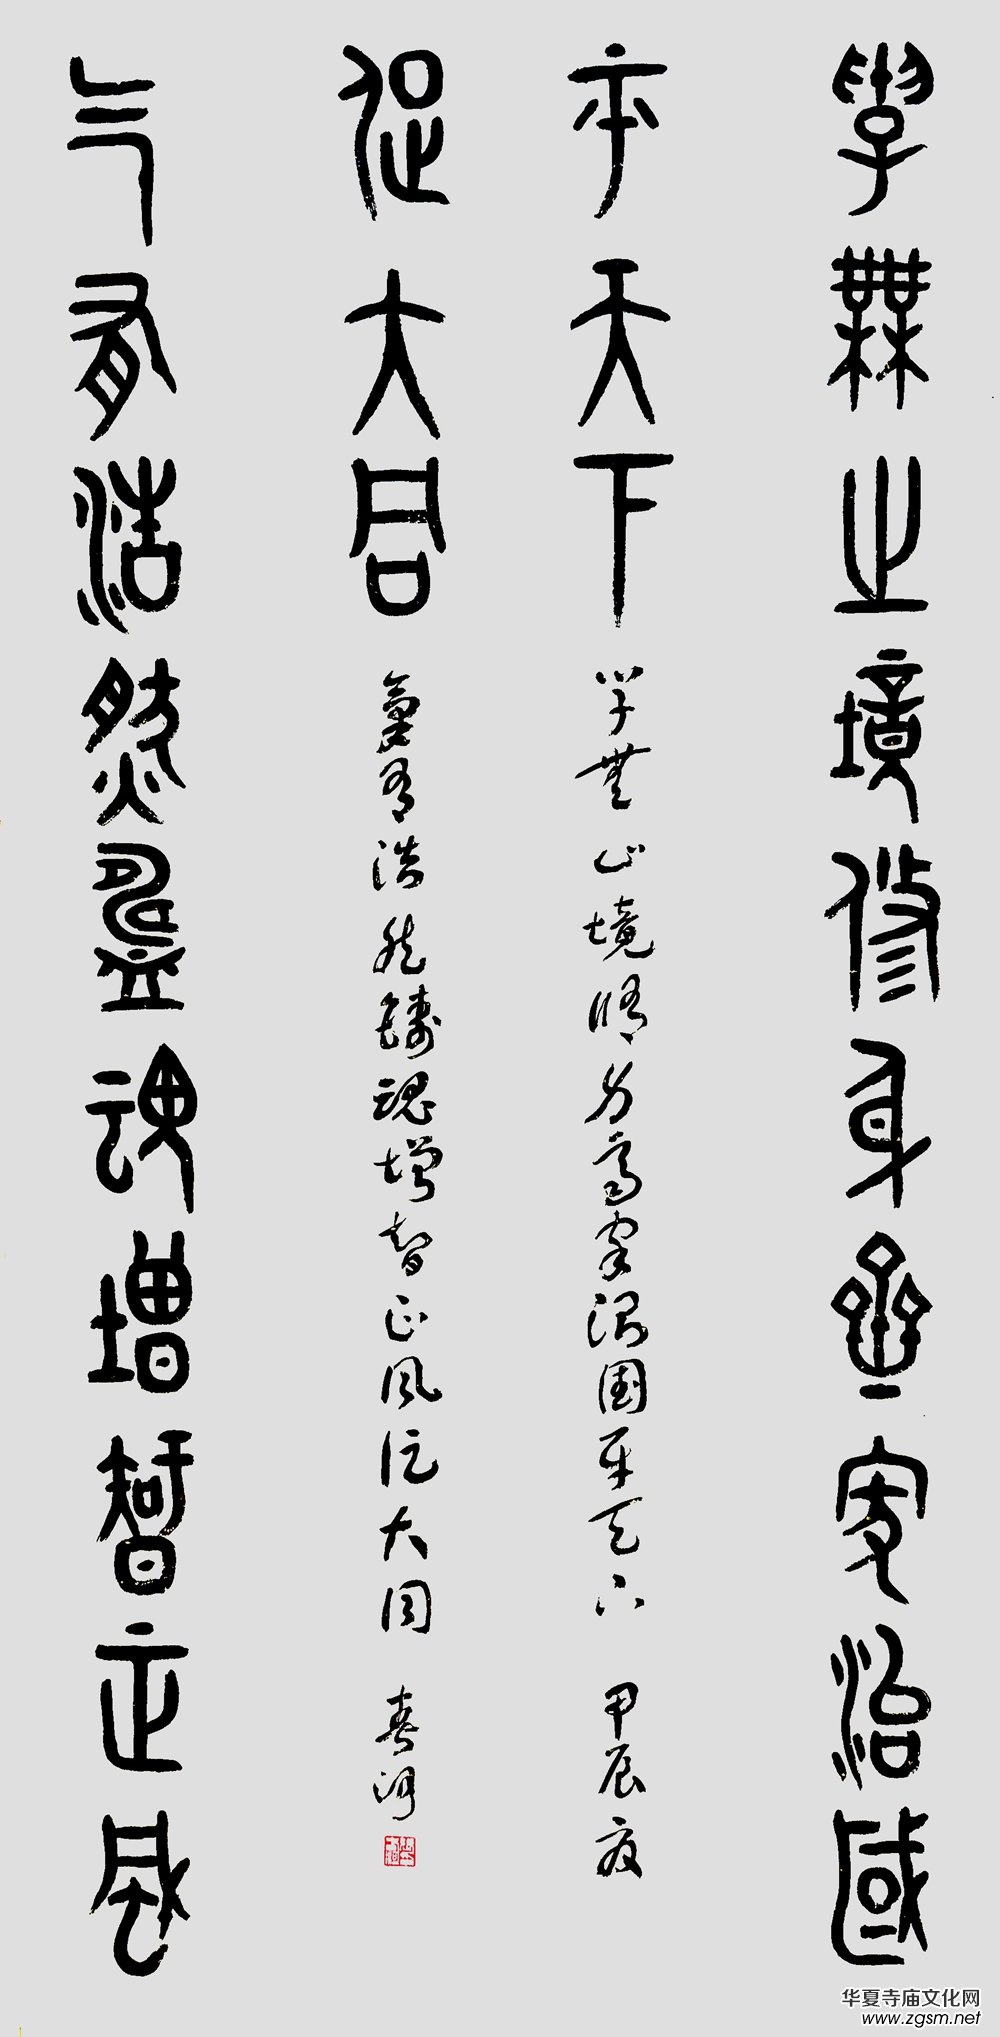 學無止境修身齊家治國
平天下
学無止境修身齊家治國平天下 甲辰夏
气有浩然鑄魂增智正風
促大同
氣有浩然鑄魂增智正風促大同
华夏寺庙文化网
www.zgsm.net